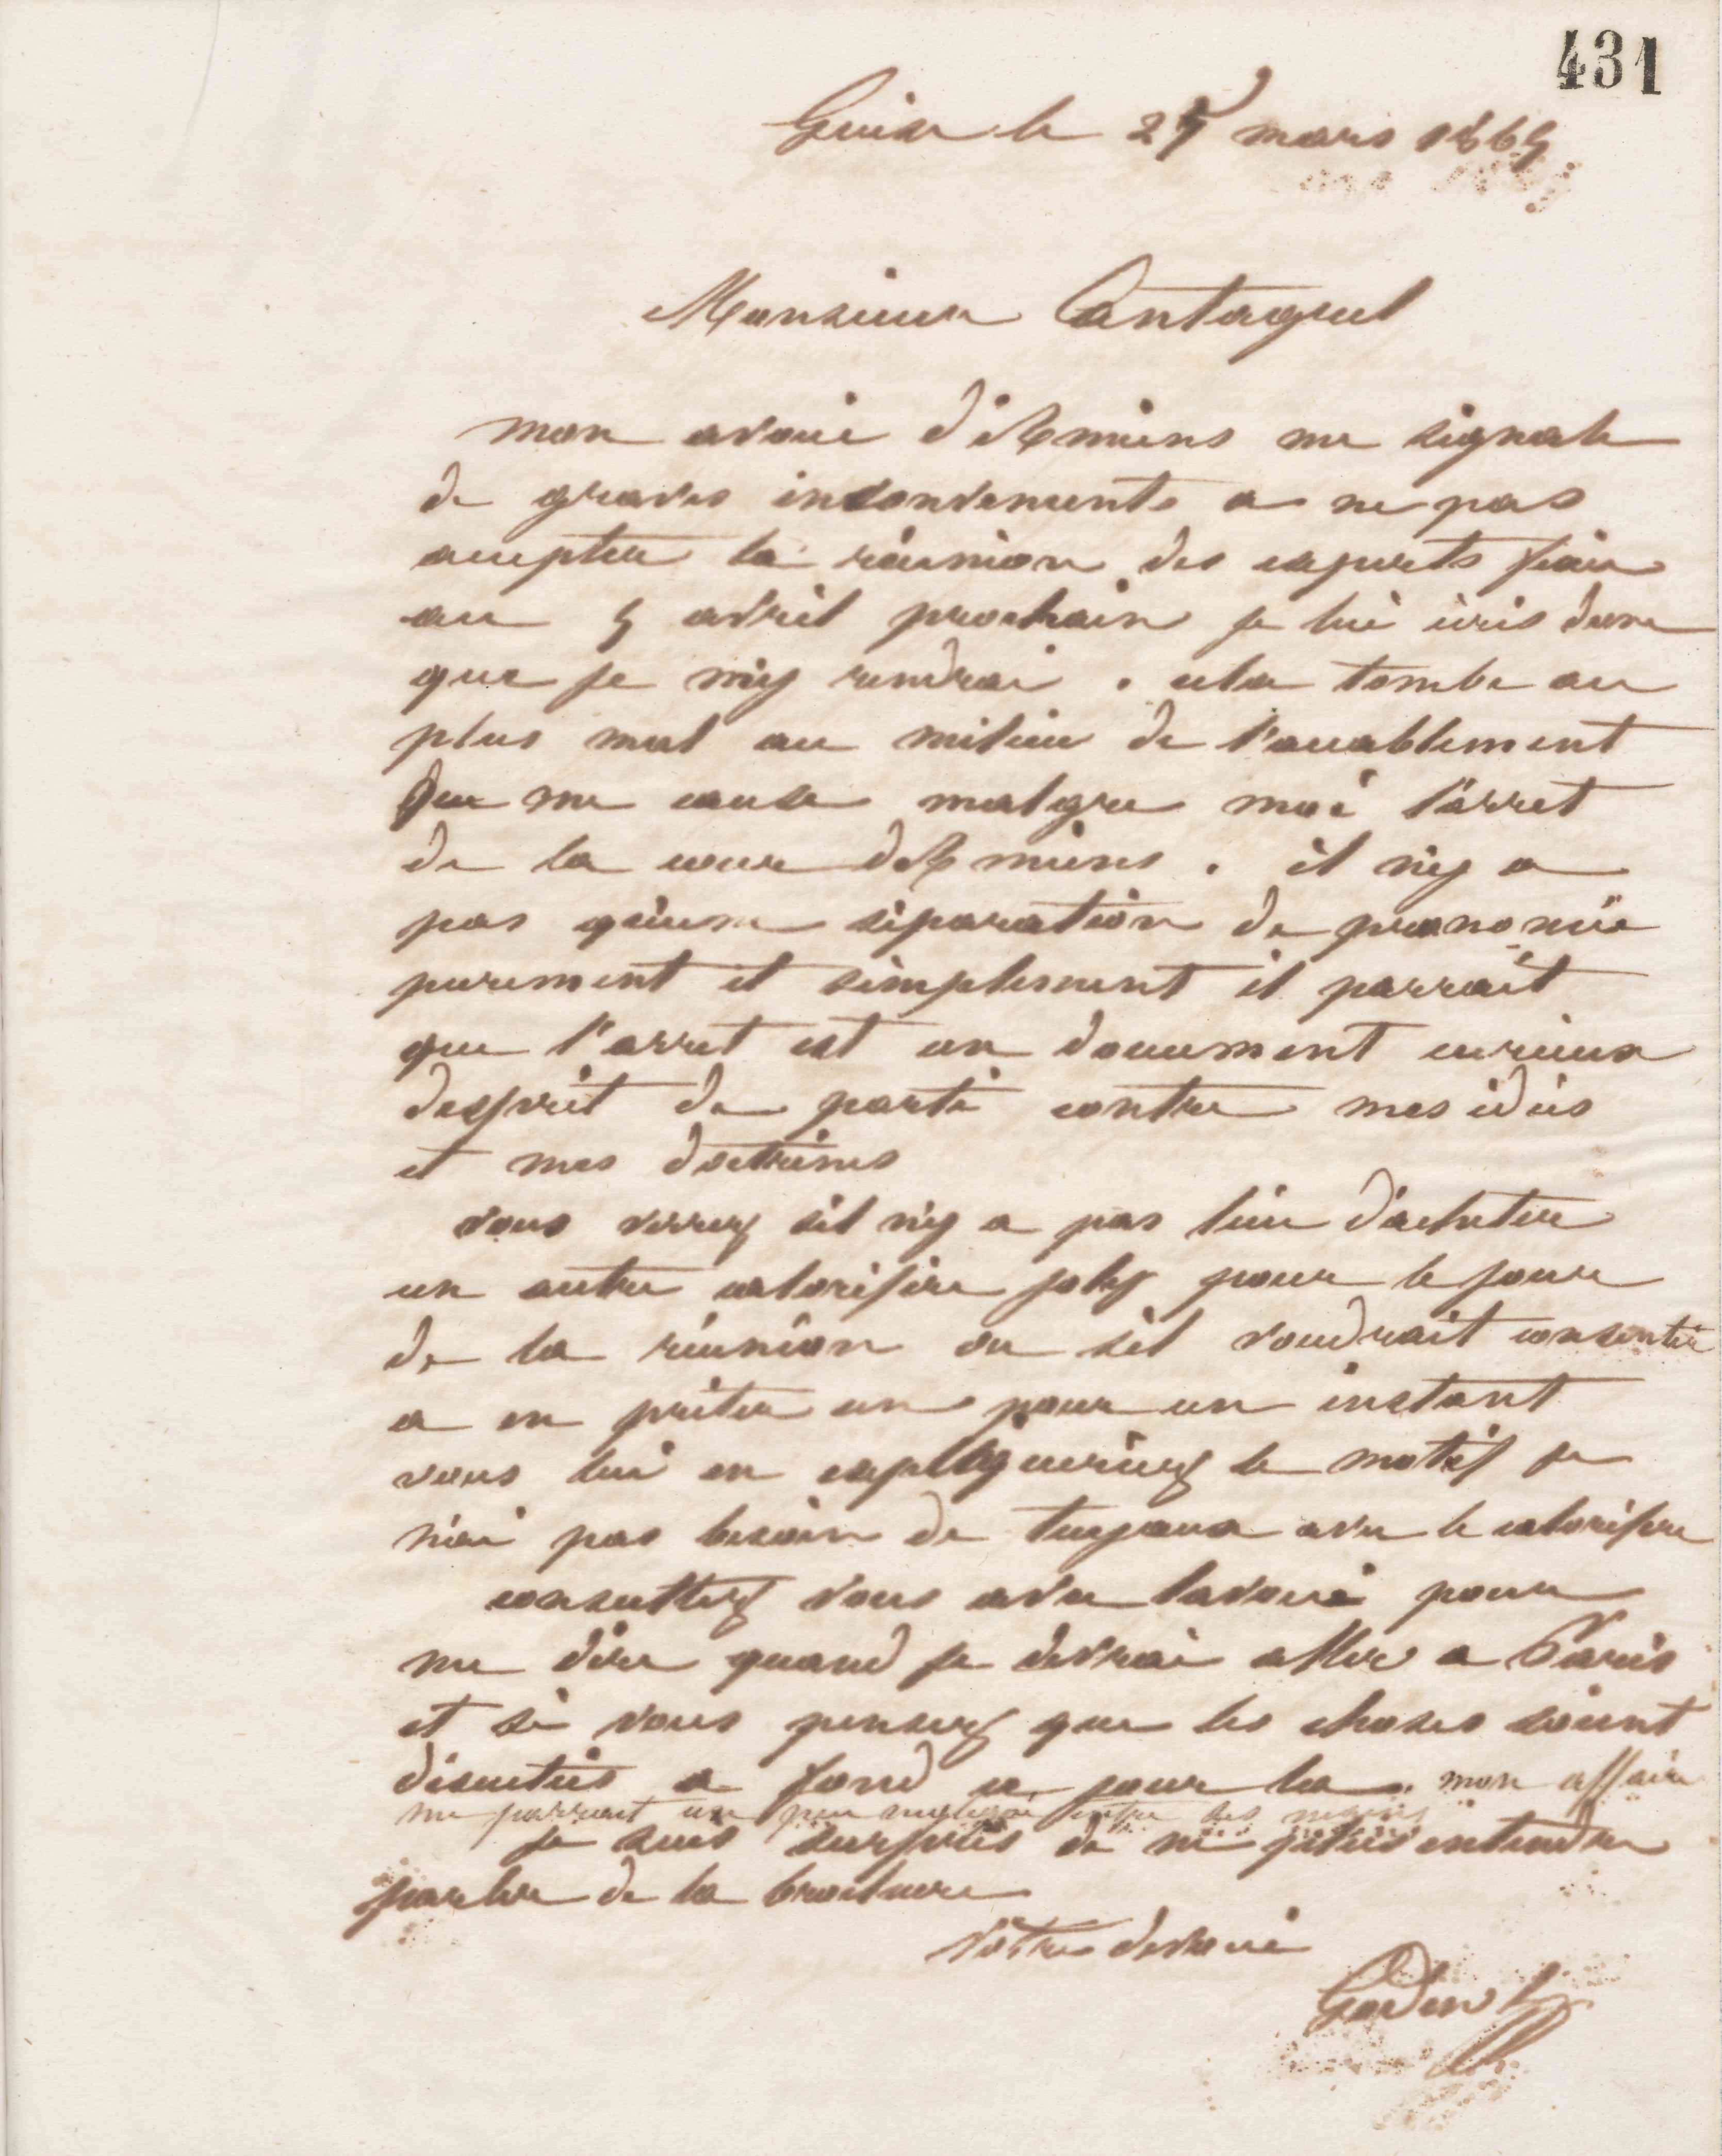 431
Guise le 27 mars 1865
Monsieur Cantagrel
mon avoué d'Amiens me signale
de graves inconvenients a ne pas
accepter la réunion des experts fixée
au 5 avril prochain je lui écris donc
que je m'y rendrai . cela tombe au
plus mal au milieu de l'accablement
que me cause malgre moi l'arret
de la cour d'Amiens . il n'y a
pas qu'une séparation de prononcée
purement et simplement il parrait
que l'arret est un document curieux
desprit de parti contre mes idées
et mes doctrines
vous verrez sil n'y a pas lieu d'acheter
un autre calorifère joly pour le jour
de la réunion ou sil voudrait consentir
a en prêter un pour un instant
vous lui en expliqueriez le motif je
n'ai pas besoin de tuyaux avec le calorifere
consultez vous avec lavoué pour
me dire quand je devrai aller a Paris
et si vous pensez que les choses soient
discutées a fond ce jour la . mon affaire
me parrait un peu negligée entre ses mains
je suis surpris de ne plus entendre
parler de la brochure
votre dévoué
Godin